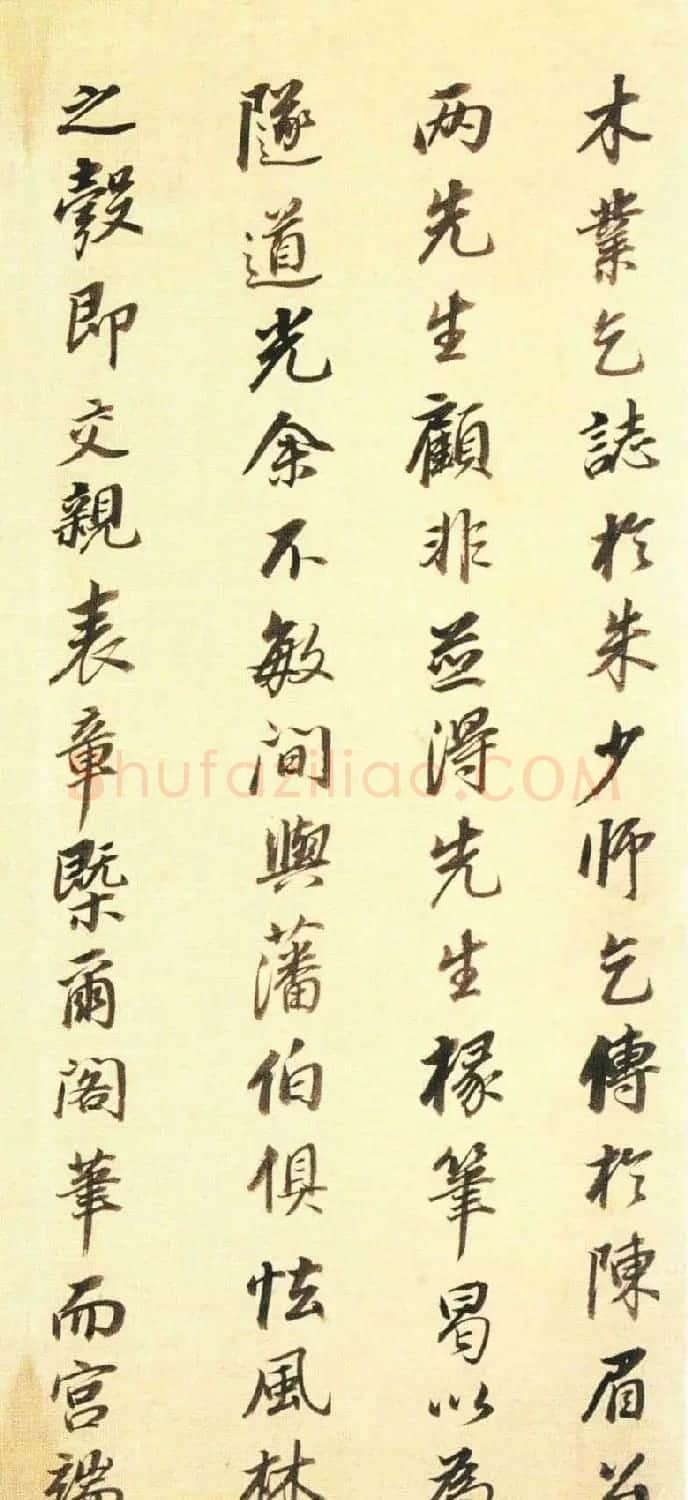 木業乞誌於朱少師乞傳於陳眉公
兩先生顧非並得先生椽筆曷以為
隧道光余不敏間與藩伯俱怯風林
之彀即交親表章槩爾閣筆而宮端
shufaziliao.COM